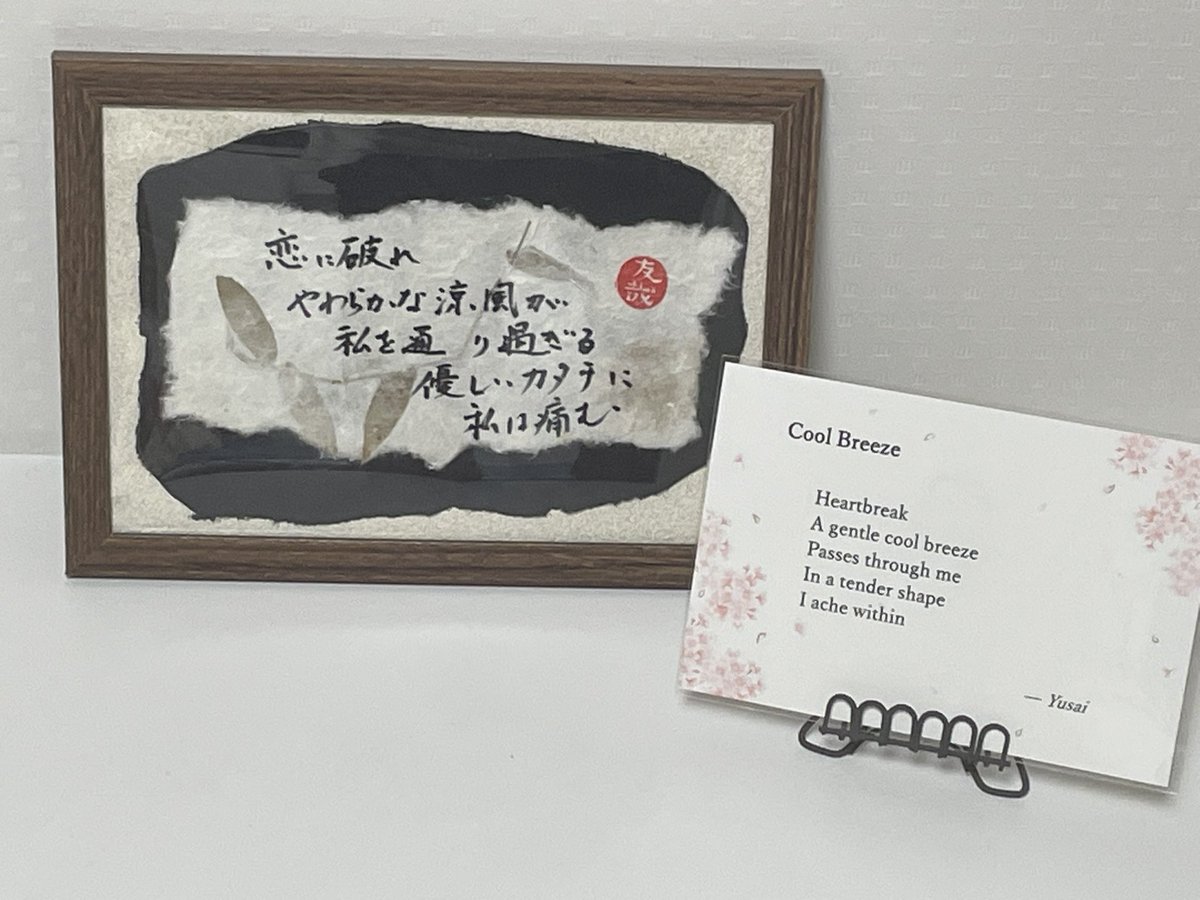 恋に破れ
やわらかな涼風が
私を通り過ぎる
優しいカタチに
私は痛む
友哉
Cool Breeze
Heartbreak
A gentle cool breeze
Passes through me
In a tender shape
I ache within
— Yusai